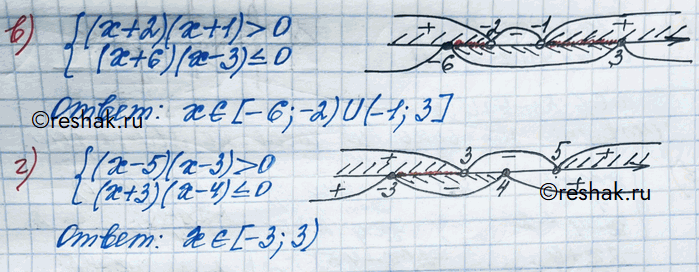 в) { (x+2)(x+1)>0
(x+6)(x-3)≤0
+ -2 - -1 +
-6 3
Ответ: x∈[-6;-2)∪(-1;3]
©reshak.ru
©reshak.ru
г) { (x-5)(x-3)>0
(x+3)(x-4)≤0
+ 3 - 5 +
+ -3 - 4 +
©reshak.ru
Ответ: x∈[-3;3)